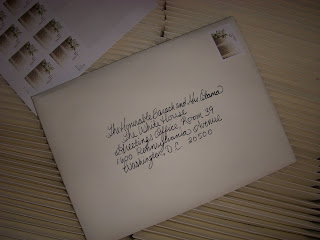 The Honorable Barack and Mrs. Obama
The White House
Greetings Office, Room 39
1600 Pennsylvania Avenue
Washington, D.C. 20500